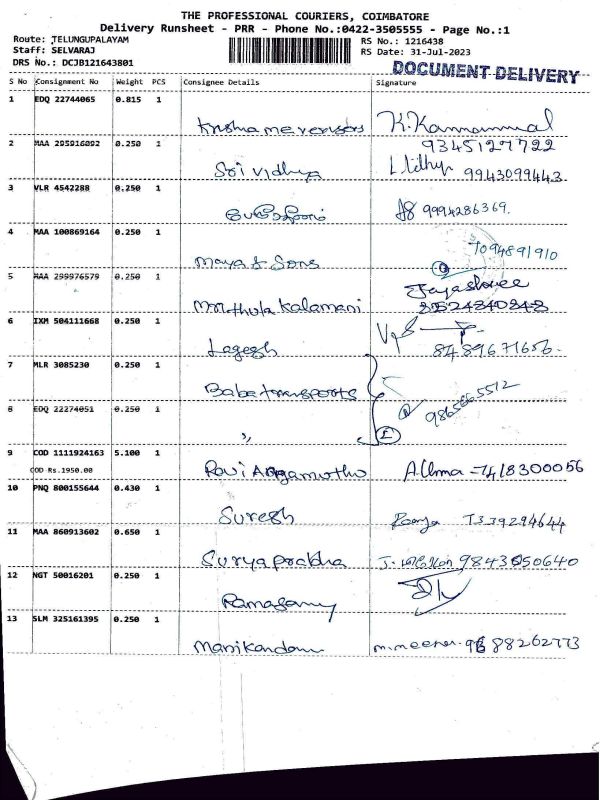 THE PROFESSIONAL COURIERS, COIMBATORE
Delivery Runsheet - PRR - Phone No.:0422-3505555 - Page No.:1
Route: TELUNGUPALAYAM RS No.: 1216438
Staff: SELVARAJ RS Date: 31-Jul-2023
DRS No.: DCJB121643801 DOCUMENT DELIVERY
S No Consignment No Weight PCS Consignee Details Signature
1 EDQ 22744065 0.815 1
K.Kannammal
9345127722
2 MAA 295916092 0.250 1
Sri Vidhya 9943099443
3 VLR 4542288 0.250 1
9994286369.
4 MAA 100869164 0.250 1
7094891910
Maya & Sons
5 MAA 299976579 0.250 1
Jayashree
Kalamani
6 IXM 504111668 0.250 1
Lagesh 8489671656
7 MLR 3085230 0.250 1
Baba transports
8 EDQ 22274051 0.250 1
,,
9 COD 1111924163 5.100 1
COD Rs.1950.00
Ravi Angamuthu A.Uma 7418300056
10 PNQ 800155644 0.430 1
Suresh
11 MAA 860913602 0.650 1
Surya prabha 9843050640
12 NGT 50016201 0.250 1
Ramasamy
13 SLM 325161395 0.250 1
Manikandan m.meena